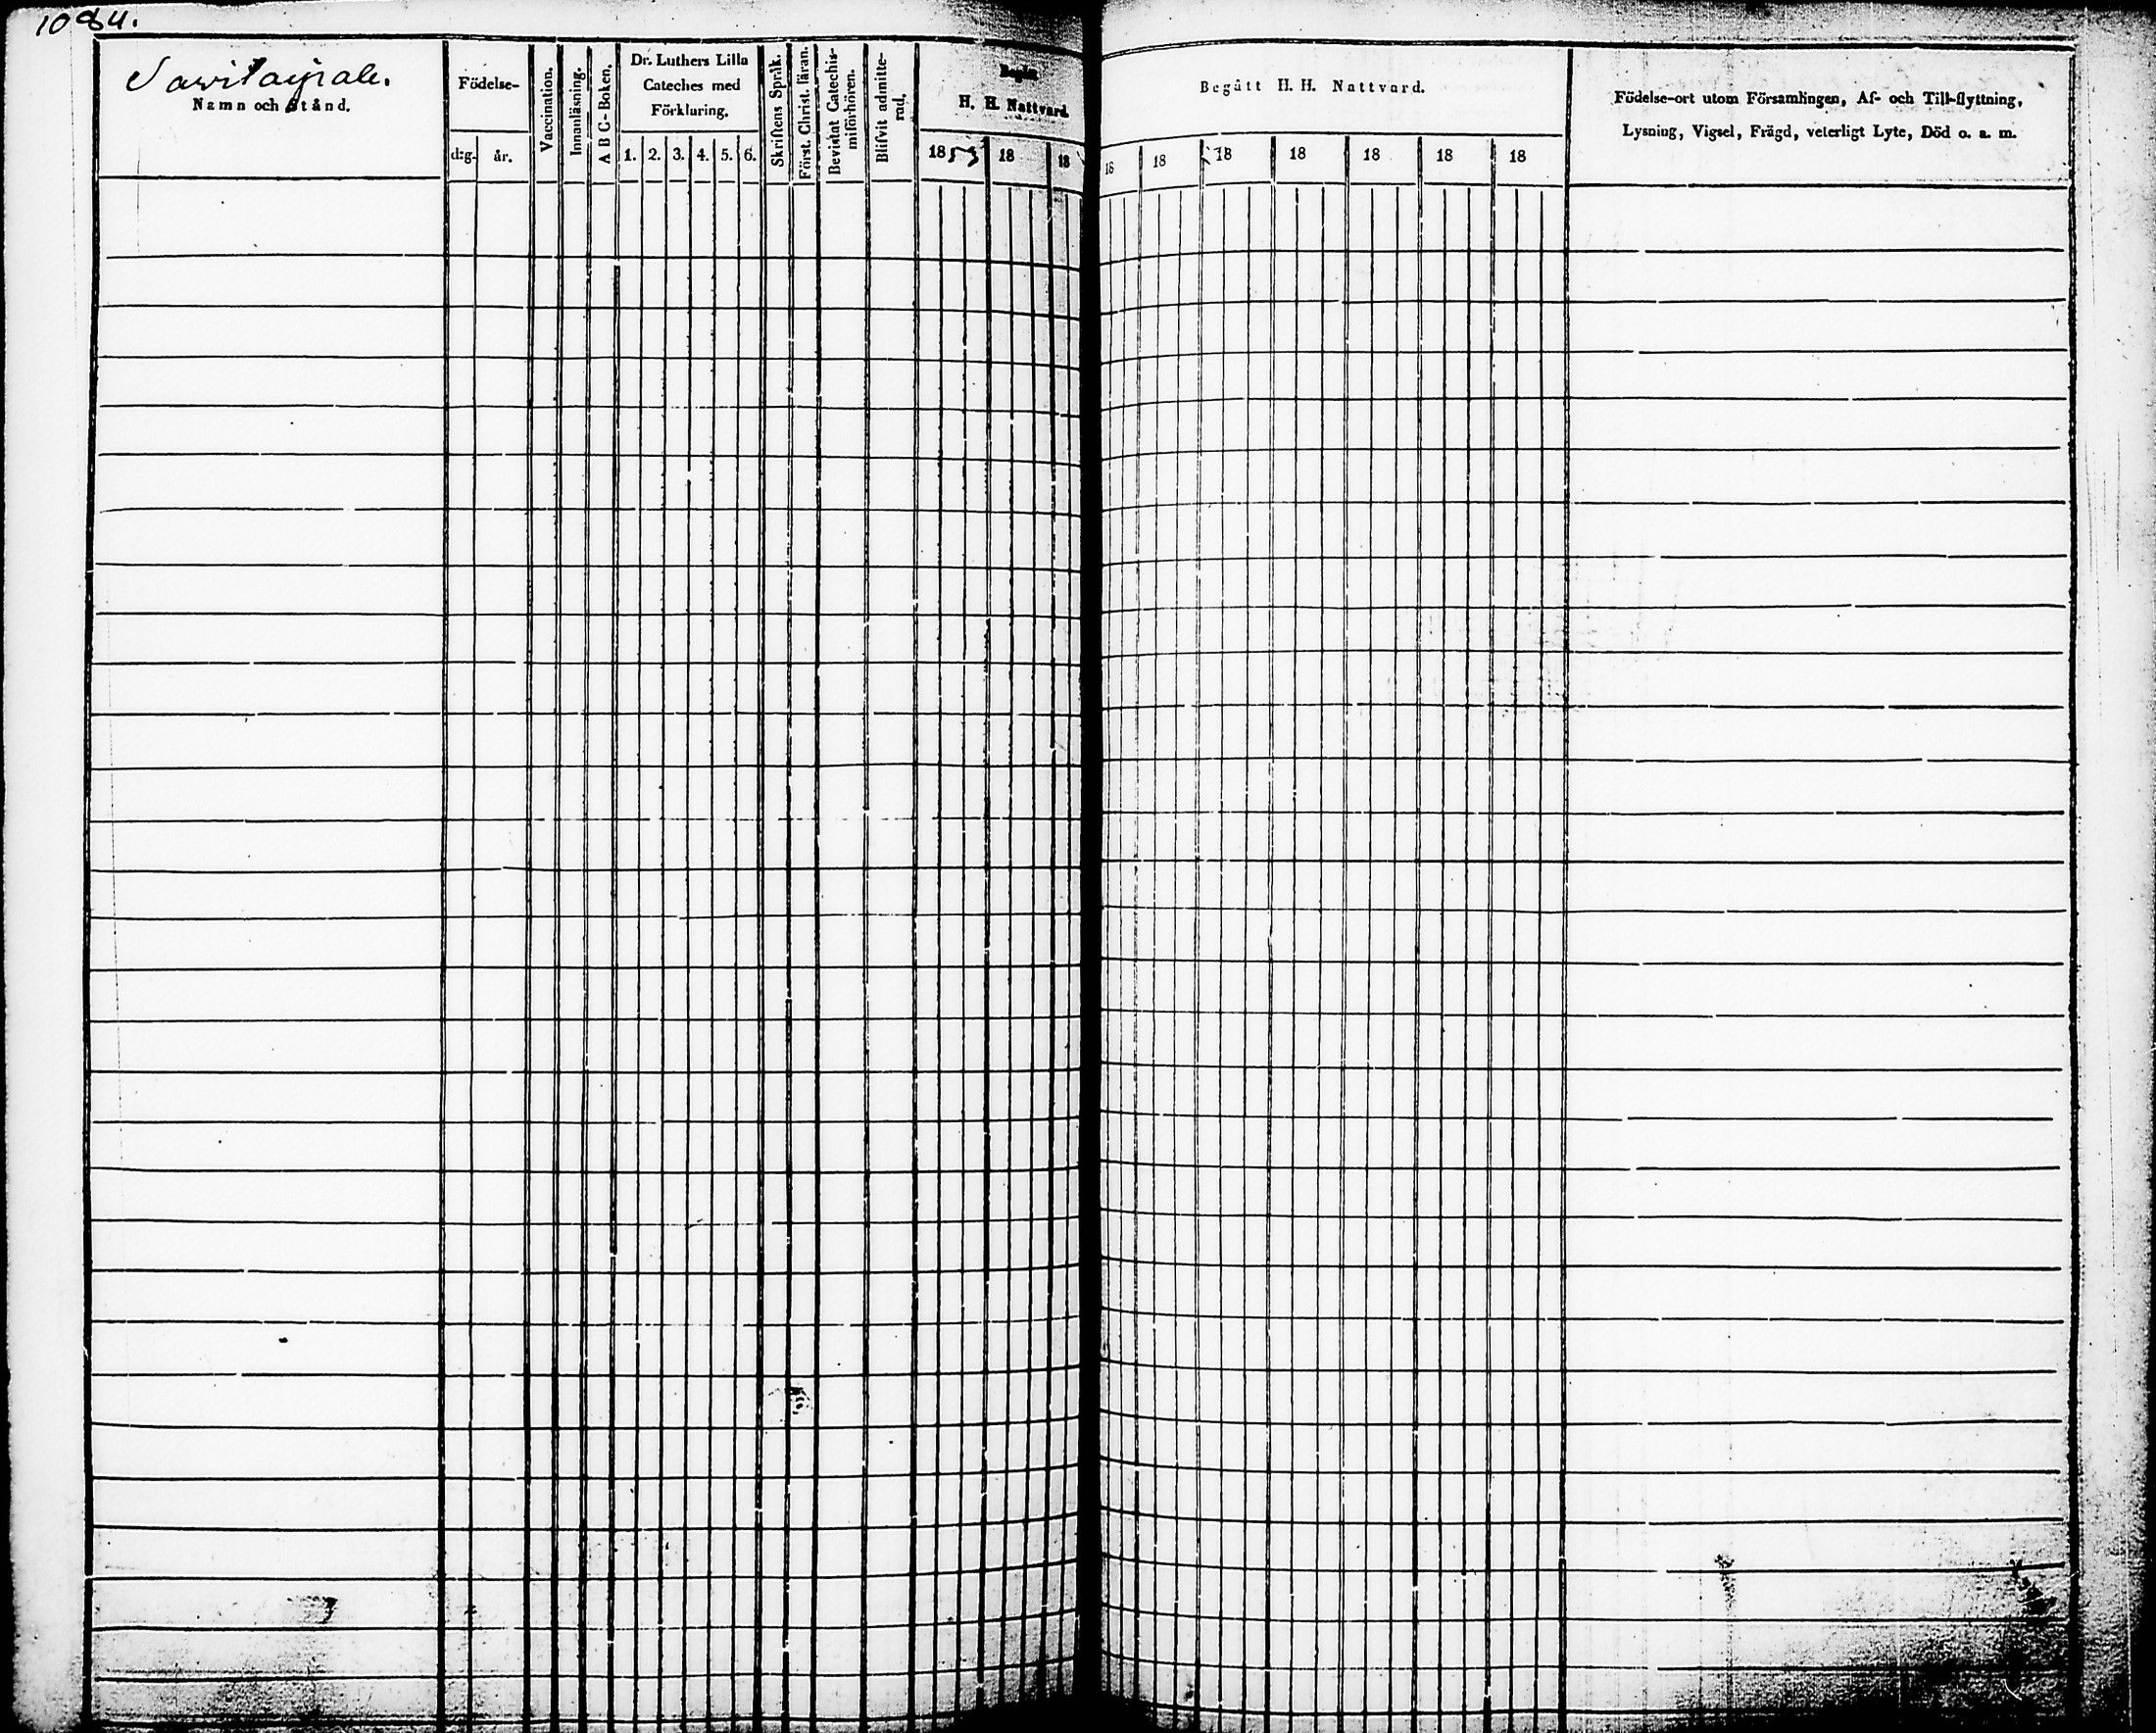 1084.
Sawitaipale.
Namn och Stånd.
Födelse-
d:g. år.
Vaccination.
Innanläsning.
A B C-Boken.
Dr. Luthers Lilla
Cateches med
Förklaring.
1. 2. 3. 4. 5. 6.
Skriftens Språk.
Först. Christ. läran.
Bevistat Catechis-
miförhören.
Blifvit admitte-
rad.
Begått
H. H. Nattvard
1855 18 18
Begått H. H. Nattvard.
18 18 18 18 18 18 18
Födelse-ort utom Församlingen, Af- och Till-flyttning,
Lysning, Vigsel, Frägd, veterligt Lyte, Död o. a. m.